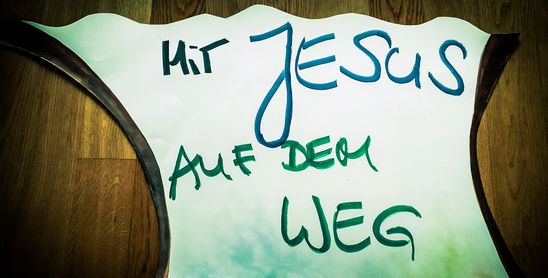 MiT JESUS
AUF DEM
WEG